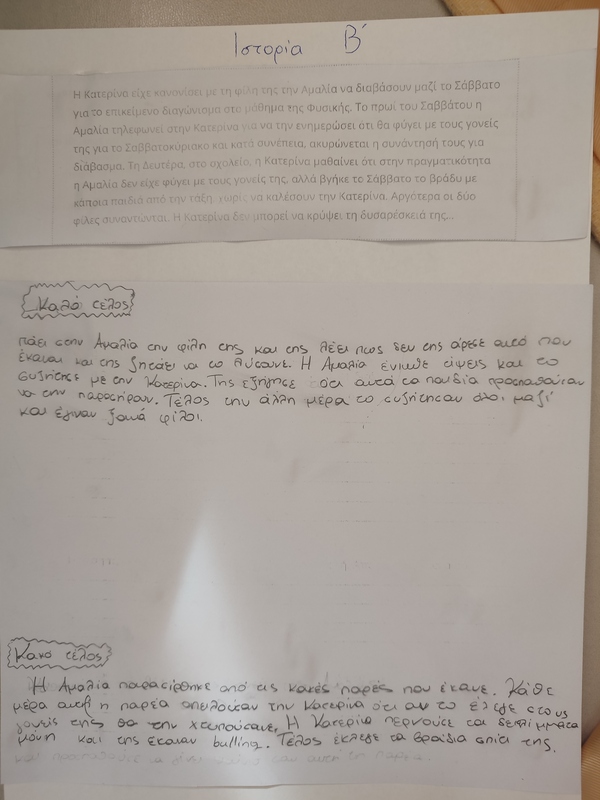 Ιστορία Β΄
Η Κατερίνα είχε κανονίσει με τη φίλη της την Αμαλία να διαβάσουν μαζί το Σάββατο
για το επικείμενο διαγώνισμα στο μάθημα της Φυσικής. Το πρωί του Σαββάτου η
Αμαλία τηλεφωνεί στην Κατερίνα για να την ενημερώσει ότι θα φύγει με τους γονείς
της για το Σαββατοκύριακο και κατά συνέπεια, ακυρώνεται η συνάντησή τους για
διάβασμα. Τη Δευτέρα, στο σχολείο, η Κατερίνα μαθαίνει ότι στην πραγματικότητα
η Αμαλία δεν είχε φύγει με τους γονείς της, αλλά βγήκε το Σάββατο το βράδυ με
κάποια παιδιά από την τάξη, χωρίς να καλέσουν την Κατερίνα. Αργότερα οι δύο
φίλες συναντώνται. Η Κατερίνα δεν μπορεί να κρύψει τη δυσαρέσκειά της...
Καλό τέλος
πάει στην Αμαλία την φίλη της και της λέει πως δεν της άρεσε αυτό που
έκαναι και της ζητάει να το λύσουνε. Η Αμαλία ένιωθε τύψεις και το
συζήτησε με την Κατερίνα. Της εξήγησε ότι αυτά τα παιδιά προσπαθούσαν
να την παρασύρουν. Τέλος την άλλη μέρα το συζήτησαν όλοι μαζί
και έγιναν ξανά φίλοι.
Κακό τέλος
Η Αμαλία παρασύρθηκε από τις κακές παρές που έκανε. Κάθε
μέρα αυτή η παρέα απειλούσαν την Κατερίνα ότι αν το έλεγε στους
γονείς της θα την χτυπούσανε. Η Κατερίνα περνούσε τα διαλείμματα
μόνη και της έκαναν bulling. Τέλος έκλεγε τα βράδια σπίτι της.